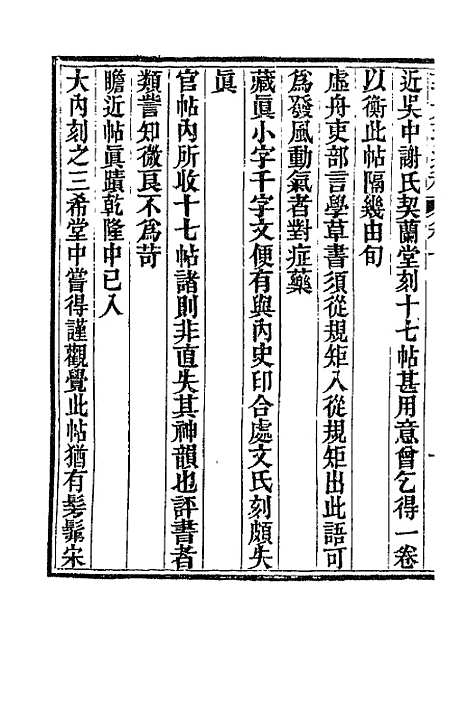 近吳中謝氏契蘭堂刻十七帖甚用意曾乞得一卷
以衡此帖隔幾由旬
虛舟吏部言學草書須從規矩入從規矩出此語可
為發風動氣者對症藥
藏眞小字千字文便有與內史印合處文氏刻頗失
眞
官帖內所收十七帖諸則非直失其神韻也評書者
類訾知微良不為苛
瞻近帖眞蹟乾隆中已入
大內刻之三希堂中嘗得謹觀覺此帖猶有髣髴宋